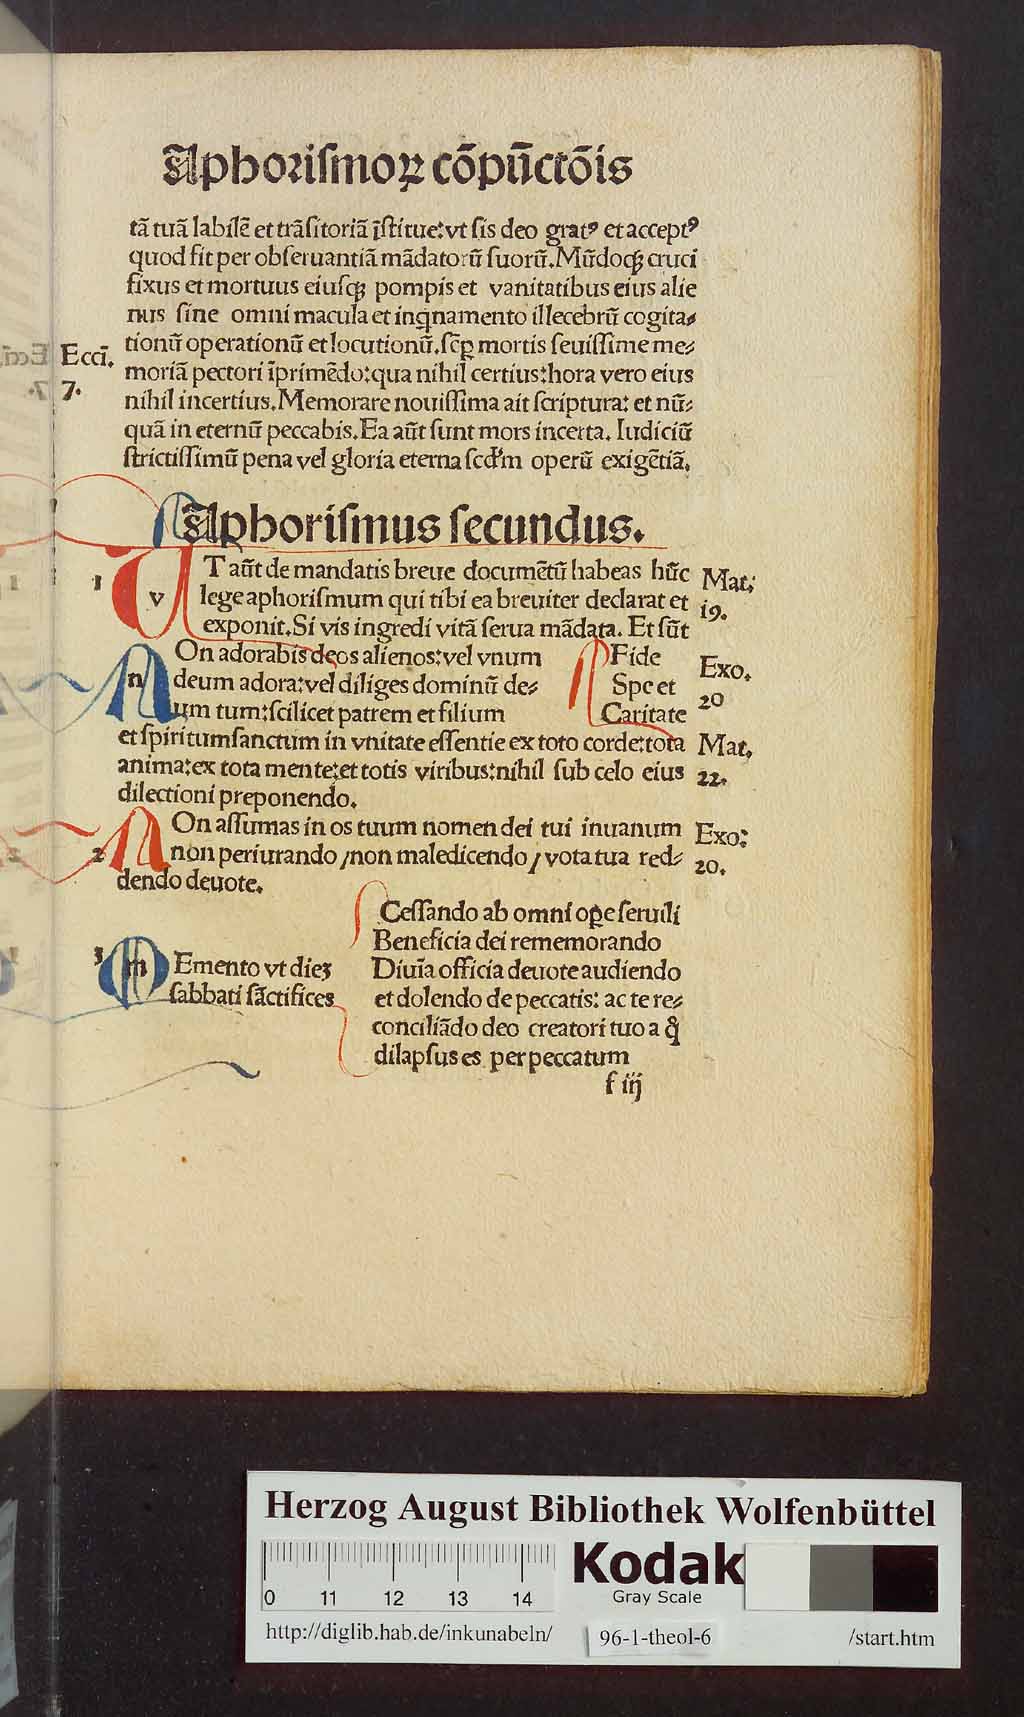 Aphorismoꝝ cōpūctōis
tā tuā labilē et trāsitoriā īstitue: vt sis deo gratꝰ et acceptꝰ
quod fit per obseruantiā mādatorū suorū. Mūdoqꝫ cruci
fixus et mortuus eiusqꝫ pompis et vanitatibus eius alie
nus sine omni macula et inq̄namento illecebrū cogita⸗
Ecci̅.
7.
tionū operationū et locutionū. sēꝑ mortis seuissime me⸗
moriā pectori īprimēdo: qua nihil certius: hora vero eius
nihil incertius. Memorare nouissima ait scriptura: et nū⸗
quā in eternū peccabis. Ea aūt sunt mors incerta. Iudiciū
strictissimū pena vel gloria eterna scd'm operū exigētiā.
Aphorismus secundus.
1 v T aūt de mandatis breue documētū habeas hūc
lege aphorismum qui tibi ea breuiter declarat et
exponit. Si vis ingredi vitā serua mādata. Et sūt
Mat:
i9.
n On adorabis deos alienos: vel vnum
deum adora: vel diliges dominū de⸗
um tum: scilicet patrem et filium
Fide
Spe et
Caritate
Exo.
20
et spiritumsanctum in vnitate essentie ex toto corde: tota
anima: ex tota mente: et totis viribus: nihil sub celo eius
dilectioni preponendo.
Mat.
22.
2 On assumas in os tuum nomen dei tui inuanum
non periurando / non maledicendo / vota tua red⸗
dendo deuote.
Exo:
20.
3 m Emento vt dieȝ
sabbati sāctifices
Cessando ab omni oꝑe seruili
Beneficia dei rememorando
Diuīa officia deuote audiendo
et dolendo de peccatis: ac te re⸗
conciliādo deo creatori tuo a q̄
dilapsus es per peccatum
f iij
Herzog August Bibliothek Wolfenbüttel
0 11 12 13 14
Kodak
Gray Scale
http://diglib.hab.de/inkunabeln/ 96-1-theol-6 /start.htm